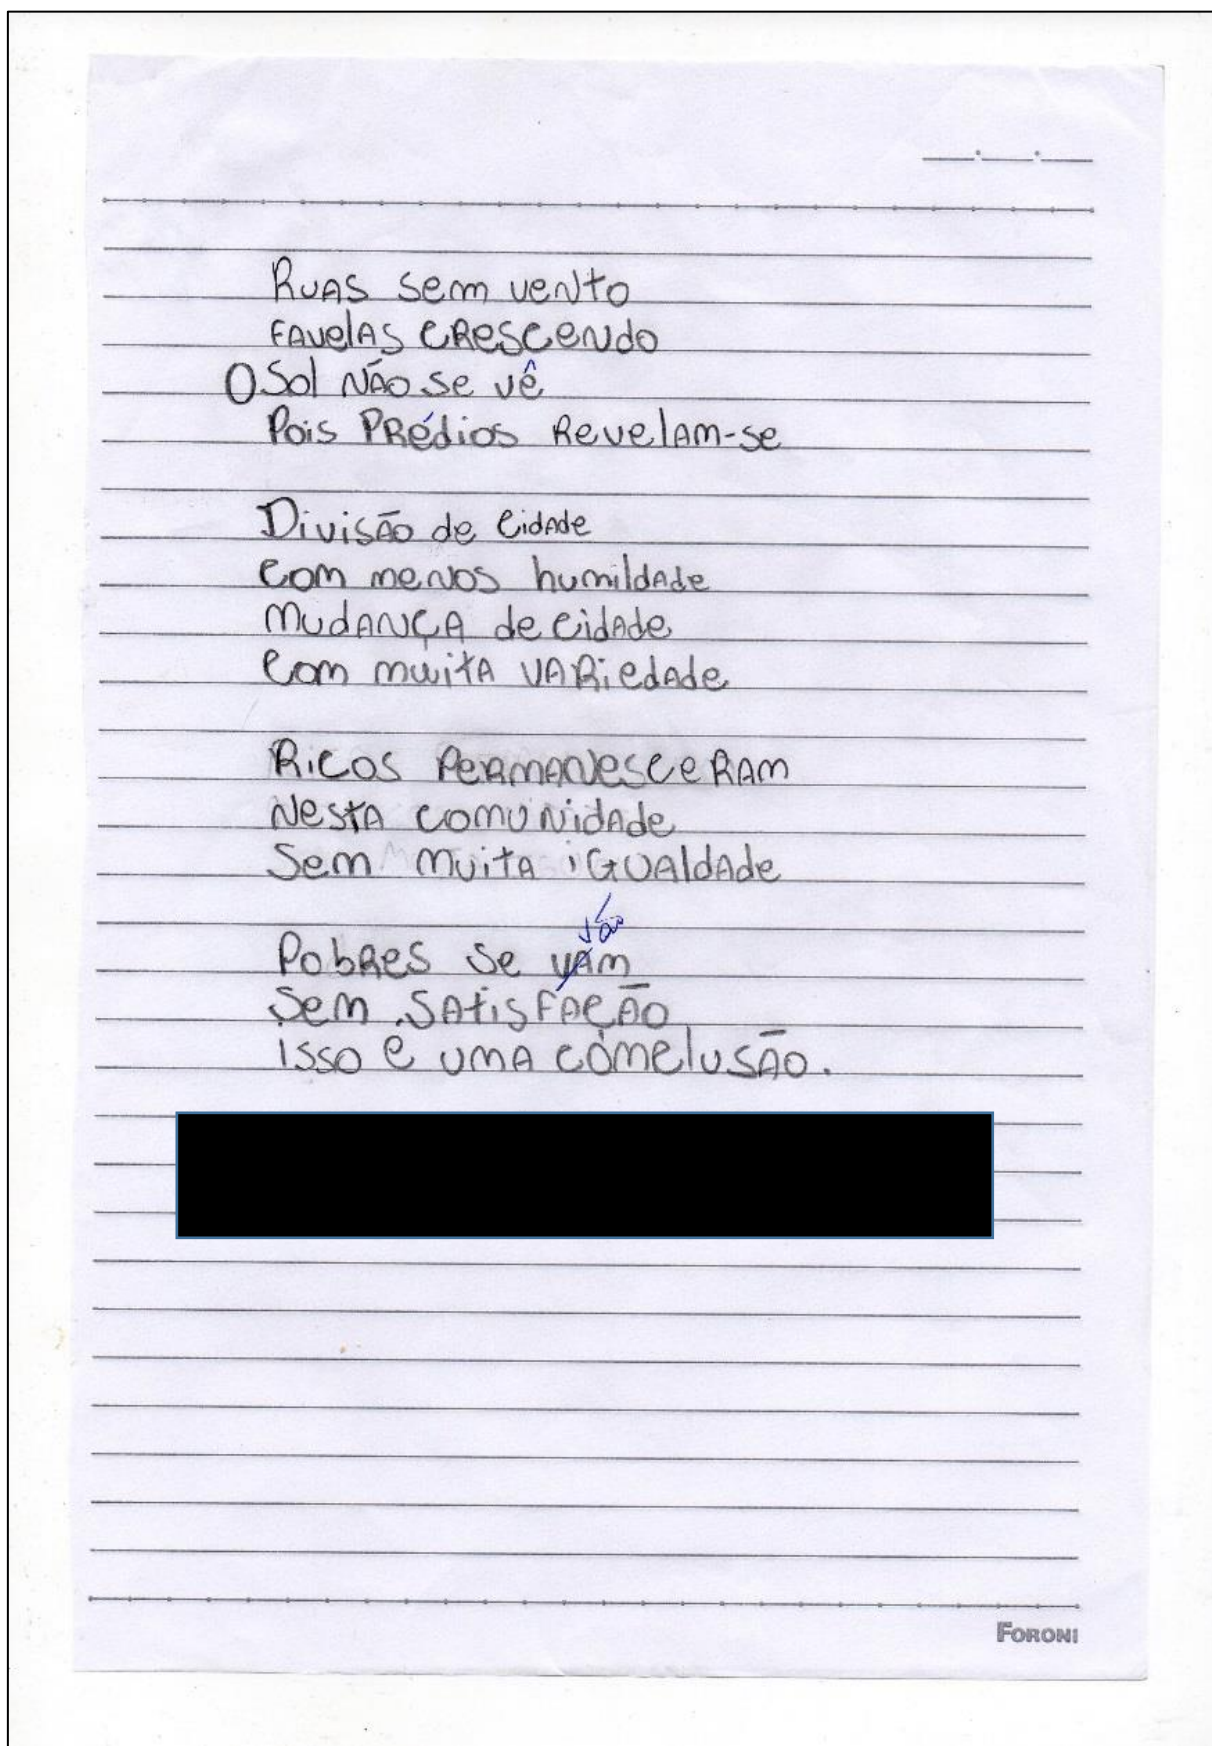 Ruas sem vento
Favelas crescendo
O Sol não se vê
Pois Prédios Revelam-se
Divisão de cidade
com menos humildade
mudança de cidade
com muita variedade
Ricos Permanesceram
Nesta comunidade
Sem muita igualdade
vão
Pobres se vam
Sem satisfação
isso é uma comclusão.
FORONI